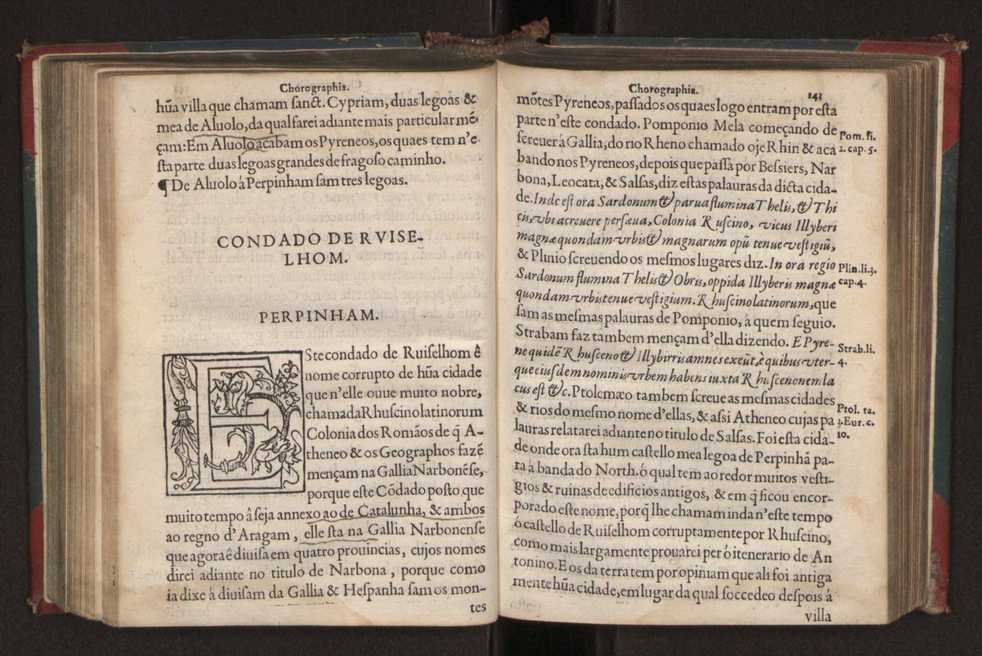 Chorographia.
hũa villa que chamam ſanct. Cypriam, duas legoas &
mea de Aluolo, da qual farei adiante mais particular mẽ-
çam: Em Aluolo acabam os Pyreneos, os quaes tem n'e-
ſta parte duas legoas grandes de fragoſo caminho.
¶ De Aluolo à Perpinham ſam tres legoas.
CONDADO DE RVISE-
LHOM.
PERPINHAM.
ESte condado de Ruiſelhom ê
nome corrupto de hũa cidade
que n'elle ouue muito nobre,
chamada Rhuſcino latinorum
Colonia dos Romãos de q̃ A-
theneo & os Geographos fazẽ
mençam na Gallia Narbonẽſe,
porque eſte Cõdado poſto que
muito tempo â ſeja annexo ao de Catalunha, & ambos
ao regno d'Aragam, elle ſta na Gallia Narbonenſe
que agora ê diuiſa em quatro prouincias, cujos nomes
direi adiante no titulo de Narbona, porque como
ia dixe à diuiſam da Gallia & Heſpanha ſam os mon-
tes
Chorographia. 141
mõtes Pyreneos, paſſados os quaes logo entram por eſta
parte n'eſte condado. Pomponio Mela começando de
ſcreuer â Gallia, do rio Rheno chamado oje Rhin & aca
bando nos Pyreneos, depois que paſſa por Beſsiers, Nar
bona, Leocata, & Salſas, diz eſtas palauras da dicta cida-
de. Inde eſt ora Sardonum & parua flumina Thelis, & Thi
cis, vbi acreuere perſæua, Colonia Ruſcino, vicus Illyberi
magnæ quondam vrbis & magnarum opũ tenue veſtigiũ,
& Plinio ſcreuendo os meſmos lugares diz. In ora regio
Sardonum flumina Thelis & Obris, oppida Illyberis magnæ
quondam vrbis tenue veſtigium. Rhuſcino latinorum, que
ſam as meſmas palauras de Pomponio, à quem ſeguio.
Strabam faz tambem mençam d'ella dizendo. E Pyre-
ne quidẽ Rhuſceno & Illybirris amnes exeũt, è quibus vter-
que eiuſdem nominis vrbem habens iuxta Rhuſcenonem la
cus eſt &c. Ptolemæo tambem ſcreue as meſmas cidades
& rios do meſmo nome d'ellas, & aſsi Atheneo cujas pa
lauras relatarei adiante no titulo de Salſas. Foi eſta cida-
de onde ora ſta hum caſtello mea legoa de Perpinhã pa-
ra à banda do North. ò qual tem ao redor muitos veſti-
gios & ruinas de edificios antigos, & em q̃ ficou encor-
porado eſte nome, porq̃ lhe chamam inda n'eſte tempo
ò caſtello de Ruiſelhom corruptamente por Rhuſcino,
como mais largamente prouarei per ò itenerario de An
tonino. E os da terra tem por opiniam que ali foi antiga
mente hũa cidade, em lugar da qual ſoccedeo deſpois à
villa
Pom. li.
2. cap. 5.
Plin. li. 3.
cap. 4.
Strab. li.
4.
Ptol. ta.
3. Eur. c.
10.